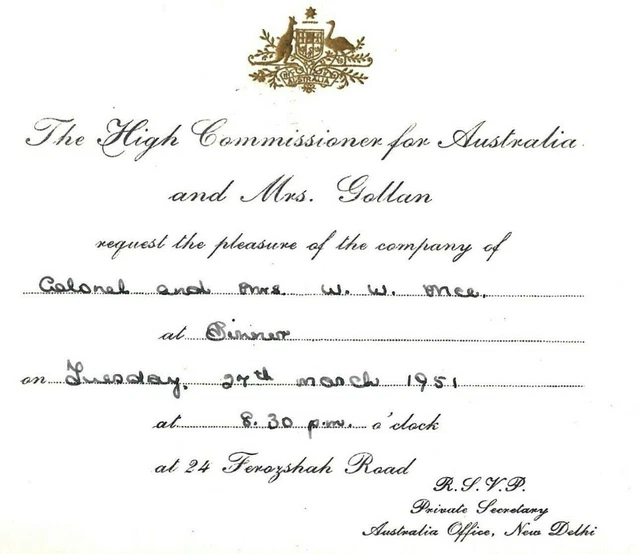 AUSTRALIA
The High Commissioner for Australia
and Mrs. Gollan
request the pleasure of the company of
Colonel and Mrs. W. W. Mee.
at Dinner
on Tuesday, 27th March 1951
at 8.30 p.m. o'clock
at 24 Ferozshah Road
R.S.V.P.
Private Secretary
Australia Office, New Delhi